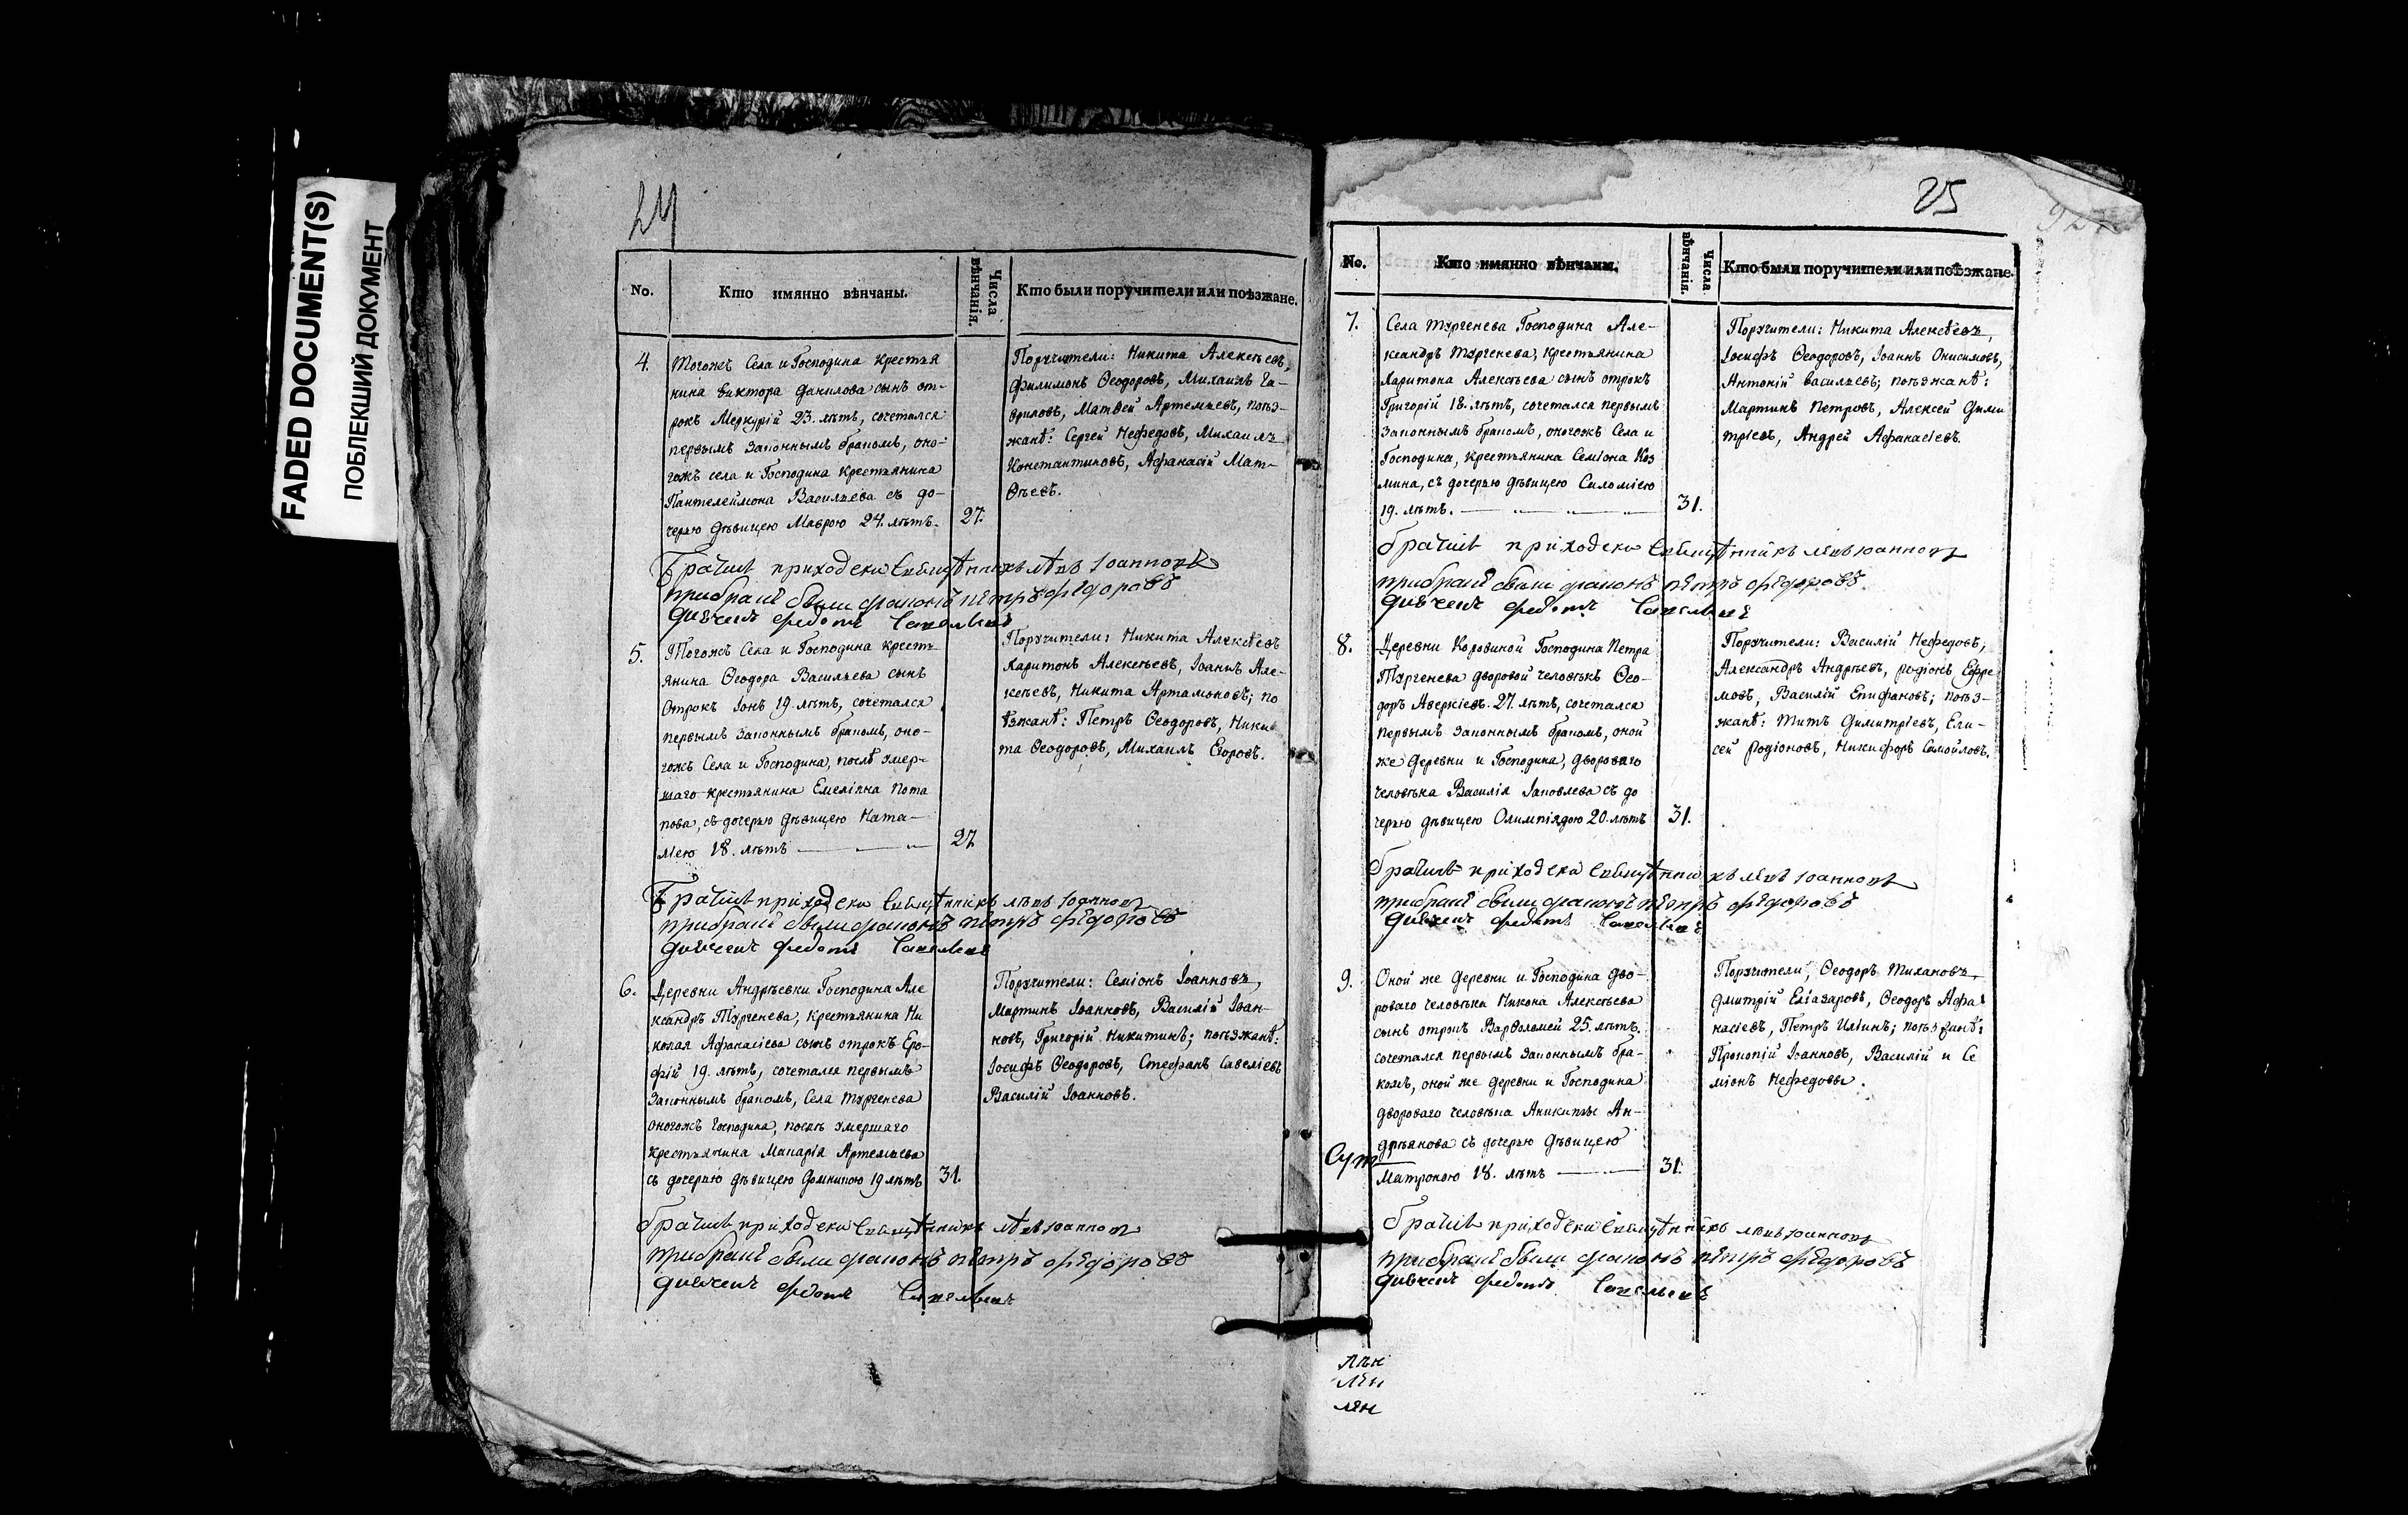 FADED DOCUMENT(S)
ПОБЛЕКШИЙ ДОКУМЕНТ
24
No.
Кто имянно вѣнчаны.
Числа вѣнчанія.
Кто были поручители или поѣзжане.
4.
Тогожъ Села и Господина крестья
нина Виктора Данилова сынъ от-
рокъ Меркурій 23. лѣтъ, сочетался
первымъ законнымъ бракомъ, оно-
гожъ села и Господина крестьянина
Пантелеймона Васильева съ до-
черью дѣвицею Маврою 24. лѣтъ.
27.
Поручители: Никита Алексѣевъ,
Филимонъ Ѳеодоровъ, Михаилъ Га-
вриловъ, Матвей Артемьевъ, поѣз-
жанѣ: Сергей Нефедовъ, Михаилъ
Константиновъ, Афанасій Мат-
ѳѣевъ.
приходски
прибракѣ были дьяконъ пѣтръ фѣдоровъ
5.
Тогожъ Села и Господина кресть
янина Ѳеодора Васильева сынъ
Отрокъ Іонъ 19. лѣтъ, сочетался
первымъ законнымъ бракомъ, оно-
гожъ Села и Господина, послѣ умер-
шаго крестьянина Емеліяна Пота
пова, съ дочерью дѣвицею Ната-
ліею 18. лѣтъ
27
Поручители: Никита Алексѣевъ
Харитонъ Алексѣевъ, Іоаннъ Але-
ксѣевъ, Никита Артамоновъ; по
ѣзжанѣ: Петръ Ѳеодоровъ, Ники
та Ѳеодоровъ, Михаилъ Егоровъ.
приходски
прибракѣ были дьяконъ пѣтръ фѣдоровъ
6.
Деревни Андрѣевки Господина Але
ксандръ Тургенева, крестьянина Ни
колая Афанасіева сынъ отрокъ Еро-
фій 19. лѣтъ, сочетался первымъ
законнымъ бракомъ, Села Тургенева
оногожъ Господина, послѣ умершаго
крестьянина Макарія Артемьева
съ дочерью дѣвицею Домникою 19 лѣтъ
31.
Поручители: Семіонъ Іоанновъ,
Мартинъ Іоанновъ, Василій Іоан-
новъ, Григорій Никитинъ; поѣзжанѣ:
Іосифъ Ѳеодоровъ, Стефанъ Савеліевъ
Василій Іоанновъ.
приходски
прибракѣ были дьяконъ пѣтръ фѣдоровъ
25
No.
Кто имянно вѣнчаны.
Числа вѣнчанія.
Кто были поручители или поѣзжане.
7.
Села Тургенева Господина Але-
ксандръ Тургенева, крестьянина
Харитона Алексѣева сынъ отрокъ
Григорій 18. лѣтъ, сочетался первымъ
законнымъ бракомъ, оногожъ Села и
Господина, крестьянина Семіона Коз
мина, съ дочерью дѣвицею Саломіею
19. лѣтъ.
31.
Поручители: Никита Алексѣевъ,
Іосифъ Ѳеодоровъ, Іоаннъ Онисимовъ,
Антоній Васильевъ; поѣзжанѣ:
Мартинъ Петровъ, Алексей Дими
тріевъ, Андрей Афанасіевъ.
приходски
прибракѣ были дьяконъ пѣтръ фѣдоровъ
8.
Деревни Коровиной Господина Петра
Тургенева дворовой человѣкъ Ѳео-
доръ Аверкіевъ. 27. лѣтъ, сочетался
первымъ законнымъ бракомъ, оной
же деревни и Господина, двороваго
человѣка Василія Іаковлева съ до
черью дѣвицею Олимпіядою 20. лѣтъ
31.
Поручители: Василій Нефедовъ,
Александръ Андрѣевъ, Родіонъ Ефре
мовъ, Василій Епифановъ; поѣз-
жанѣ: Титъ Димитріевъ, Ели-
сей Родіоновъ, Никифоръ Самойловъ.
приходски
прибракѣ были дьяконъ пѣтръ фѣдоровъ
9.
Оной же деревни и Господина дво-
роваго человѣка Никона Алексѣева
сынъ отрокъ Варѳоломей 25. лѣтъ.
сочетался первымъ законнымъ бра-
комъ, оной же деревни и Господина
двороваго человѣка Аникиты Ан-
дрѣянова съ дочерью дѣвицею
Матроною 18. лѣтъ
31.
Поручители, Ѳеодоръ Тихановъ,
Дмитрій Еліазаровъ, Ѳеодоръ Афа
насіевъ, Петръ Иліинъ; поѣзжанѣ:
Прокопій Іоанновъ, Василій и Се
міонъ Нефедовы.
приходски
прибракѣ были дьяконъ пѣтръ фѣдоровъ